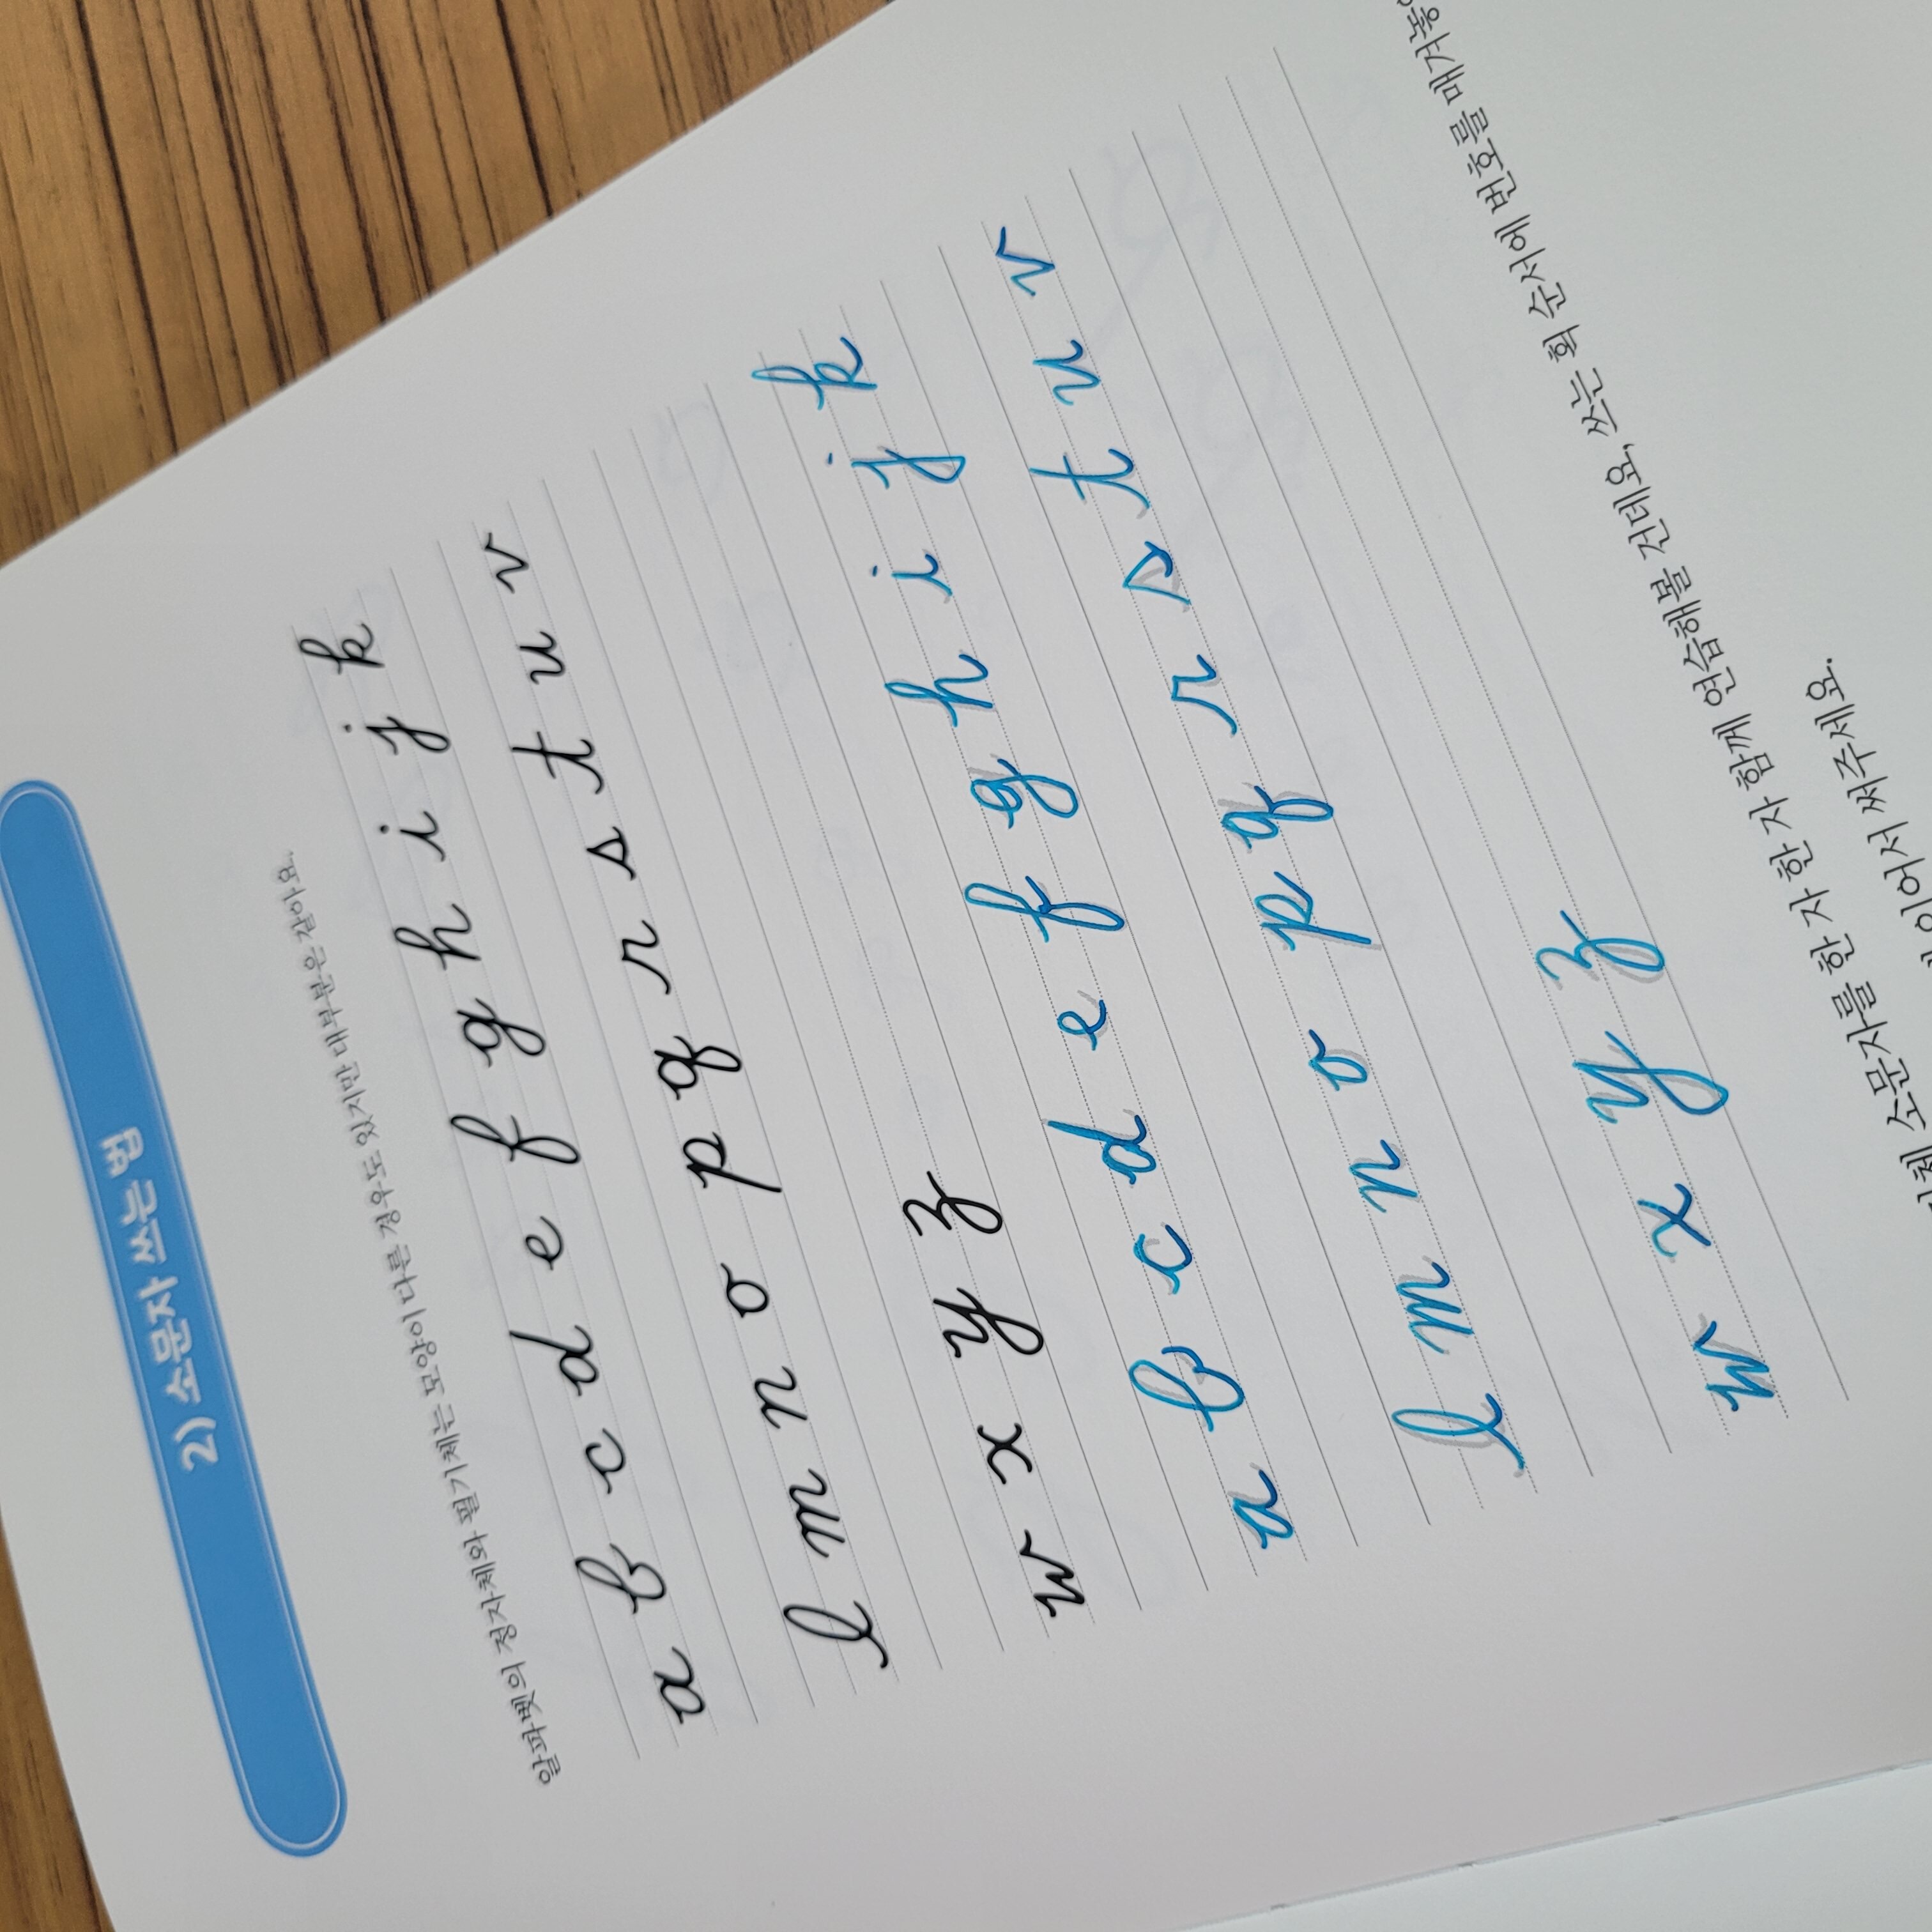 2) 소문자 쓰는 법
알파벳의 정자체와 필기체는 모양이 다른 경우도 있지만 대부분은 같아요.
a b c d e f g h i j k
l m n o p q r s t u v
w x y z
a b c d e f g h i j k
l m n o p q r s t u v
w x y z
소문자를 한 자 한 자 함께 연습해볼 건데요, 쓰는 획 순서에 번호를 매겨놓
이어서 써주세요.